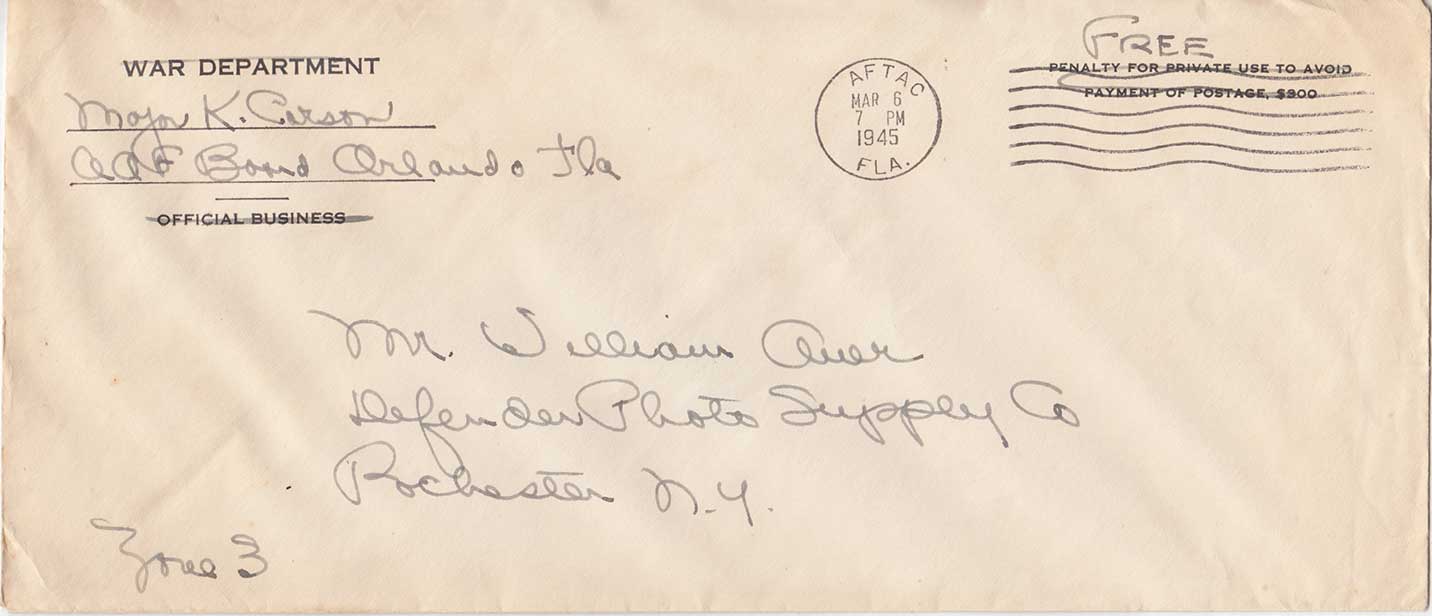 WAR DEPARTMENT
Major K. Carson
AAF Board Orlando Fla
OFFICIAL BUSINESS
AFTAC
MAR 6
7 PM
1945
FLA.
FREE
PENALTY FOR PRIVATE USE TO AVOID
PAYMENT OF POSTAGE, $300
Mr. William Auer
Defender Photo Supply Co
Rochester N.Y.
Zone 3